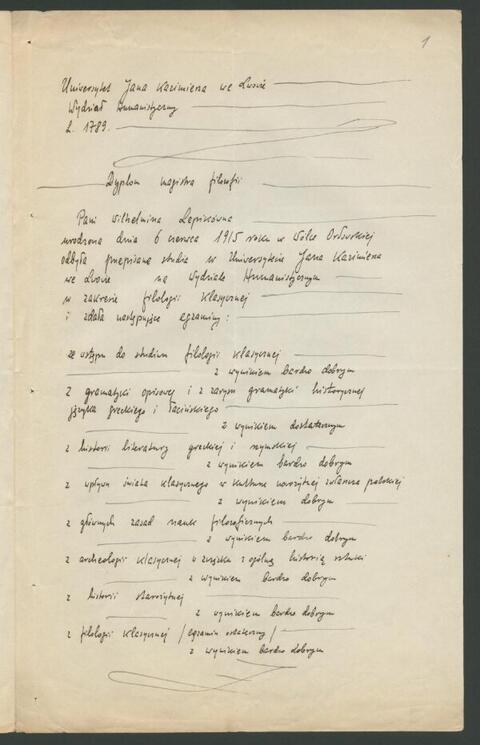 1
Uniwersytet Jana Kazimierza we Lwowie
Wydział Humanistyczny
L. 1789.
Dyplom magistra filozofii
Pani Wilhelmina Lepikówna
urodzona dnia 6 czerwca 1915 roku w Wólce Orłowskiej
odbyła przepisane studia w Uniwersytecie Jana Kazimierza
we Lwowie na Wydziale Humanistycznym
w zakresie filologii klasycznej
i zdała następujące egzaminy:
ze wstępu do studium filologii klasycznej
z wynikiem bardzo dobrym
z gramatyki opisowej i z zarysu gramatyki historycznej
języka greckiego i łacińskiego
z wynikiem dostatecznym
z historii literatury greckiej i rzymskiej
z wynikiem bardzo dobrym
z wpływu świata klasycznego w kulturze nowożytnej zwłaszcza polskiej
z wynikiem dobrym
z głównych zasad nauk filozoficznych
z wynikiem bardzo dobrym
z archeologii klasycznej w związku z ogólną historią sztuki
z wynikiem bardzo dobrym
z historii starożytnej
z wynikiem bardzo dobrym
z filologii klasycznej /egzamin ostateczny/
z wynikiem bardzo dobrym